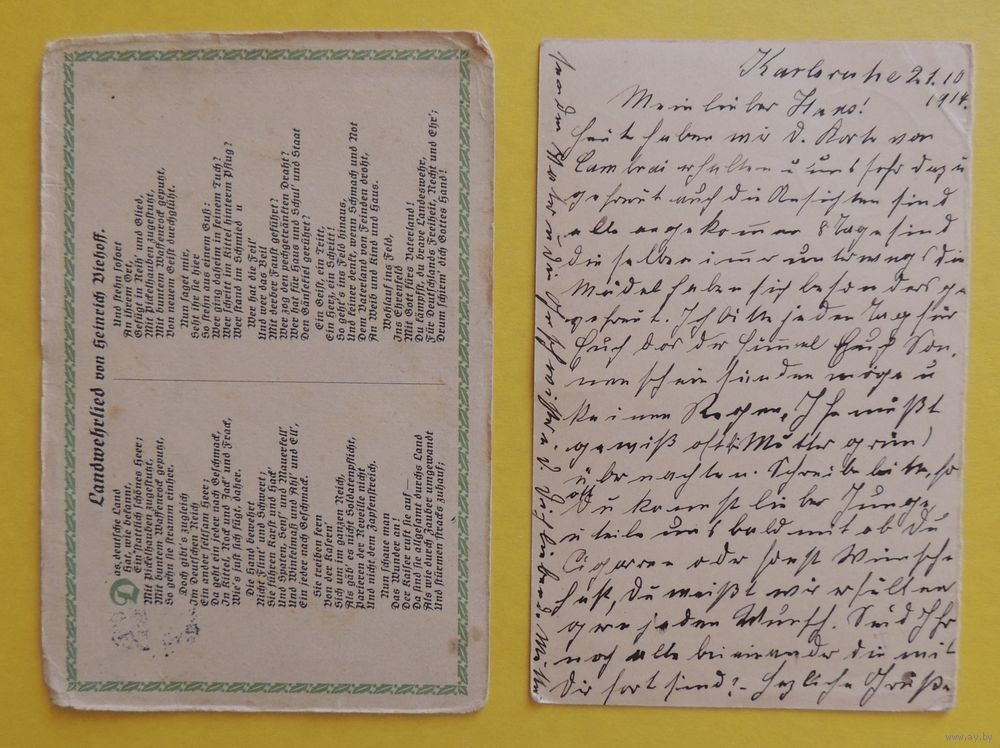 Landwehrlied von Heinrich Viehoff.
Das deutsche Land
Hat, wie bekannt,
Ein stattlich schönes Heer;
Mit Pickelhauben zugestutzt,
Mit buntem Waffenrock geputzt,
So gehn sie stramm einher.
Doch gibt's zugleich
Im Deutschen Reich
Ein ander seltsam Heer;
Da geht ein jeder nach Geschmack,
In Kittel, Wams und Jack' und Frack,
Wie's just sich fügt, daher.
Die Hand bewehrt
Nicht Flint' und Schwert;
Sie führen Karst und Hack'
Und Spaten, Sens' und Mauerkell'
Und Winkelmaß und Ahl' und Ell',
Ein jeder nach Geschmack.
Sie treiben fern
Von der Kasern'
Sich um im ganzen Reich,
Als gäb' es nicht Soldatenpflicht,
Parieren der Reveille nicht
Und nicht dem Zapfenstreich.
Nun schaue man
Das Wunder an!
Der Kaiser ruft sie auf—
Da sind sie allgesamt durchs Land
Als wie durch Zauber umgewandt
Und stürmen stracks zuhauf;
Und stehn sofort
An ihrem Ort,
Gefügt in Reih' und Glied,
Mit Pickelhauben zugestutzt,
Mit buntem Waffenrock geputzt,
Von neuem Geist durchglüht.
Nun saget mir,
Seht ihr sie hier
So stehn aus einem Guß:
Wer ging daheim in feinem Tuch?
Wer schritt im Kittel hinterm Pflug?
Wer stand im Schmiederuß
Wer hat die Feil'
Und wer das Beil
Mit derber Faust geführt?
Wer zog den pechgetränkten Draht?
Wer hat für Haus und Schul' und Staat
Den Gänsekiel gerührt?
Ein Geist, ein Tritt,
Ein Herz, ein Schritt!
So geht's ins Feld hinaus,
Und keiner denkt, wenn Schmach und Not
Dem Vaterland von Feinden droht,
An Weib und Kind und Haus.
Wohlauf ins Feld,
Ins Ehrenfeld
Mit Gott fürs Vaterland!
Du kämpfst, du brave Landeswehr,
Für Deutschlands Freiheit, Recht und Ehr';
Drum schirm' dich Gottes Hand!
Karlsruhe 21.10
1914.
Mein lieber Hans!
Heute haben wir d. Karte von
Cambrai erhalten u uns sehr dazu
gefreut auch die Ansichten sind
alle angekommen 8 Tage sind
dieselben immer unterwegs die
Mädel haben sich besonders ge
gefreut. Ich bitte jeden Tag für
Euch das der Himmel Euch Son,
nenschein senden möge u
keinen Regen, Ihr müßt
gewiß oft b. Mutter grün
übernachten. Schreibe bitte, so
oft Du kannst lieber Junge
u teile uns bald mit ob Du
Cigarren oder sonst Wünsche
hast, Du weißt wir erfüllen
gern jeden Wunsch. Seid Ihr
noch alle beieinander die mit
Dir fort sind? Herzliche Grüße